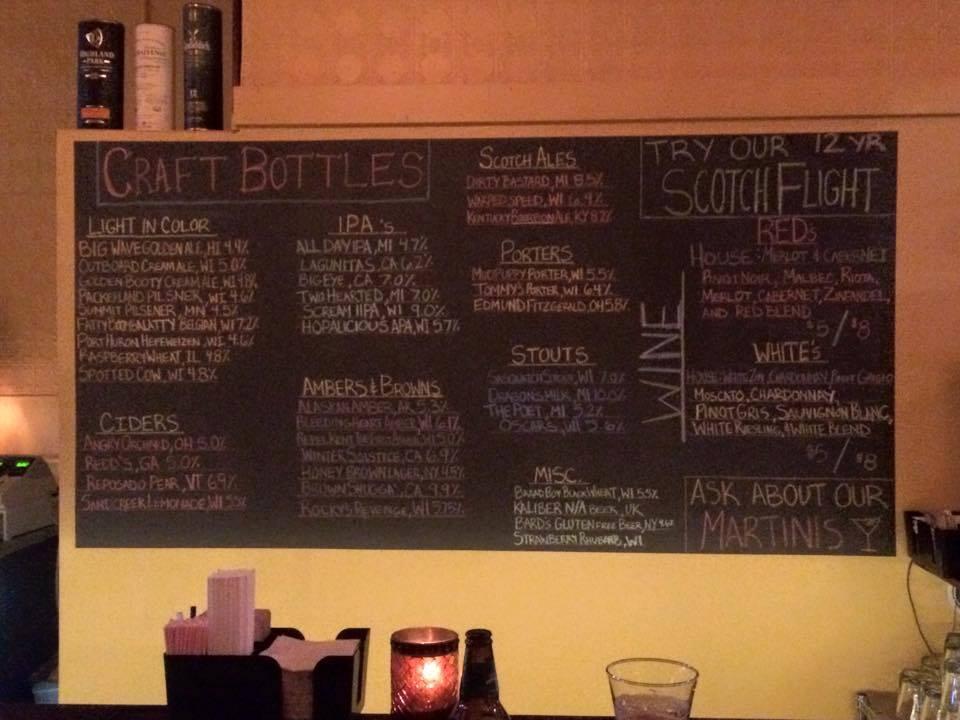 HIGHLAND
PARK
12
CRAFT BOTTLES
LIGHT IN COLOR
BIG WAVE GOLDEN ALE, HI 4.4%
OUTBOARD CREAM ALE, WI 5.0%
GOLDEN BOOTY CREAM ALE, WI 4.8%
PACKERLAND PILSNER, WI 4.6%
SUMMIT PILSENER, MN 4.5%
FATTY BOOMBALATTY BELGIAN, WI 7.2%
PORT HURON HEFEWEIZEN, WI 4.6%
RASPBERRY WHEAT, IL 4.8%
SPOTTED COW, WI 4.8%
CIDERS
ANGRY ORCHARD, OH 5.0%
REDD'S, GA 5.0%
REPOSADO PEAR, VT 6.9%
SAINT CREEK LEMONADE, WI 5.5%
IPA's
ALL DAY IPA, MI 4.7%
LAGUNITAS, CA 6.2%
BIG EYE, CA 7.0%
TWO HEARTED, MI 7.0%
SCREAM IIPA, WI 9.0%
HOPALICIOUS APA, WI 5.7%
AMBERS & BROWNS
ALASKAN AMBER, AK 5.3%
BLEEDING HEART AMBER, WI 6.1%
REBEL KENT THE FIRST AMBER, WI 5.0%
WINTER SOLSTICE, CA 6.9%
HONEY BROWN LAGER, NY 4.5%
BROWN SHUGGA', CA 9.9%
ROCKY'S REVENGE, WI 5.75%
SCOTCH ALES
DIRTY BASTARD, MI 8.5%
WARPED SPEED, WI
KENTUCKY BOURBON ALE, KY 8.2%
PORTERS
MUDPUPPY PORTER, WI 5.5%
TOMMY'S PORTER, WI 6.4%
EDMUND FITZGERALD, OH 5.8%
STOUTS
SASQUATCH STOUT, WI 7.0%
DRAGONS MILK, MI 10.0%
THE POET, MI 5.2%
OSCARS, WI 5.6%
MISC.
BREAD BOY BLACK WHEAT, WI 5.5%
KALIBER N/A BEER, UK
BARD'S GLUTEN FREE BEER, NY 4.6%
STRAWBERRY RHUBARB, WI
TRY OUR 12 YR
SCOTCH FLIGHT
WINE
REDS
HOUSE: MERLOT & CABERNET
PINOT NOIR, MALBEC, RIOJA,
MERLOT, CABERNET, ZINFANDEL,
AND RED BLEND
$5/$8
WHITE'S
HOUSE: WHITE ZIN, CHARDONNAY, PINOT GRIGIO
MOSCATO, CHARDONNAY,
PINOT GRIS, SAUVIGNON BLANC,
WHITE RIESLING, & WHITE BLEND
$5/$8
ASK ABOUT OUR
MARTINIS